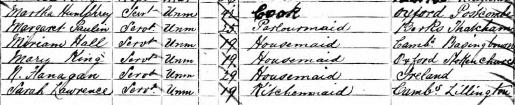 Martha Humphrey Servt Unm Cook Oxford Postcombe
Margaret Paulin Servt Unm 25 Parlourmaid Berks Thatcham
Miriam Hall Servt Unm 19 Housemaid Cambs Bassingbourn
Mary King Servt Unm 19 Housemaid Oxford Stokenchurch
N. Flanagan Servt Unm 29 Housemaid Ireland
Sarah Lawrence Servt Unm 19 Kitchenmaid Cambs Litlington